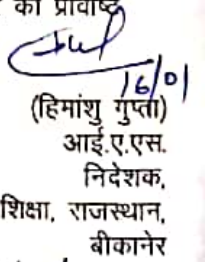 की प्रविष्टि
16/01
(हिमांशु गुप्ता)
आई.ए.एस.
निदेशक,
शिक्षा, राजस्थान,
बीकानेर